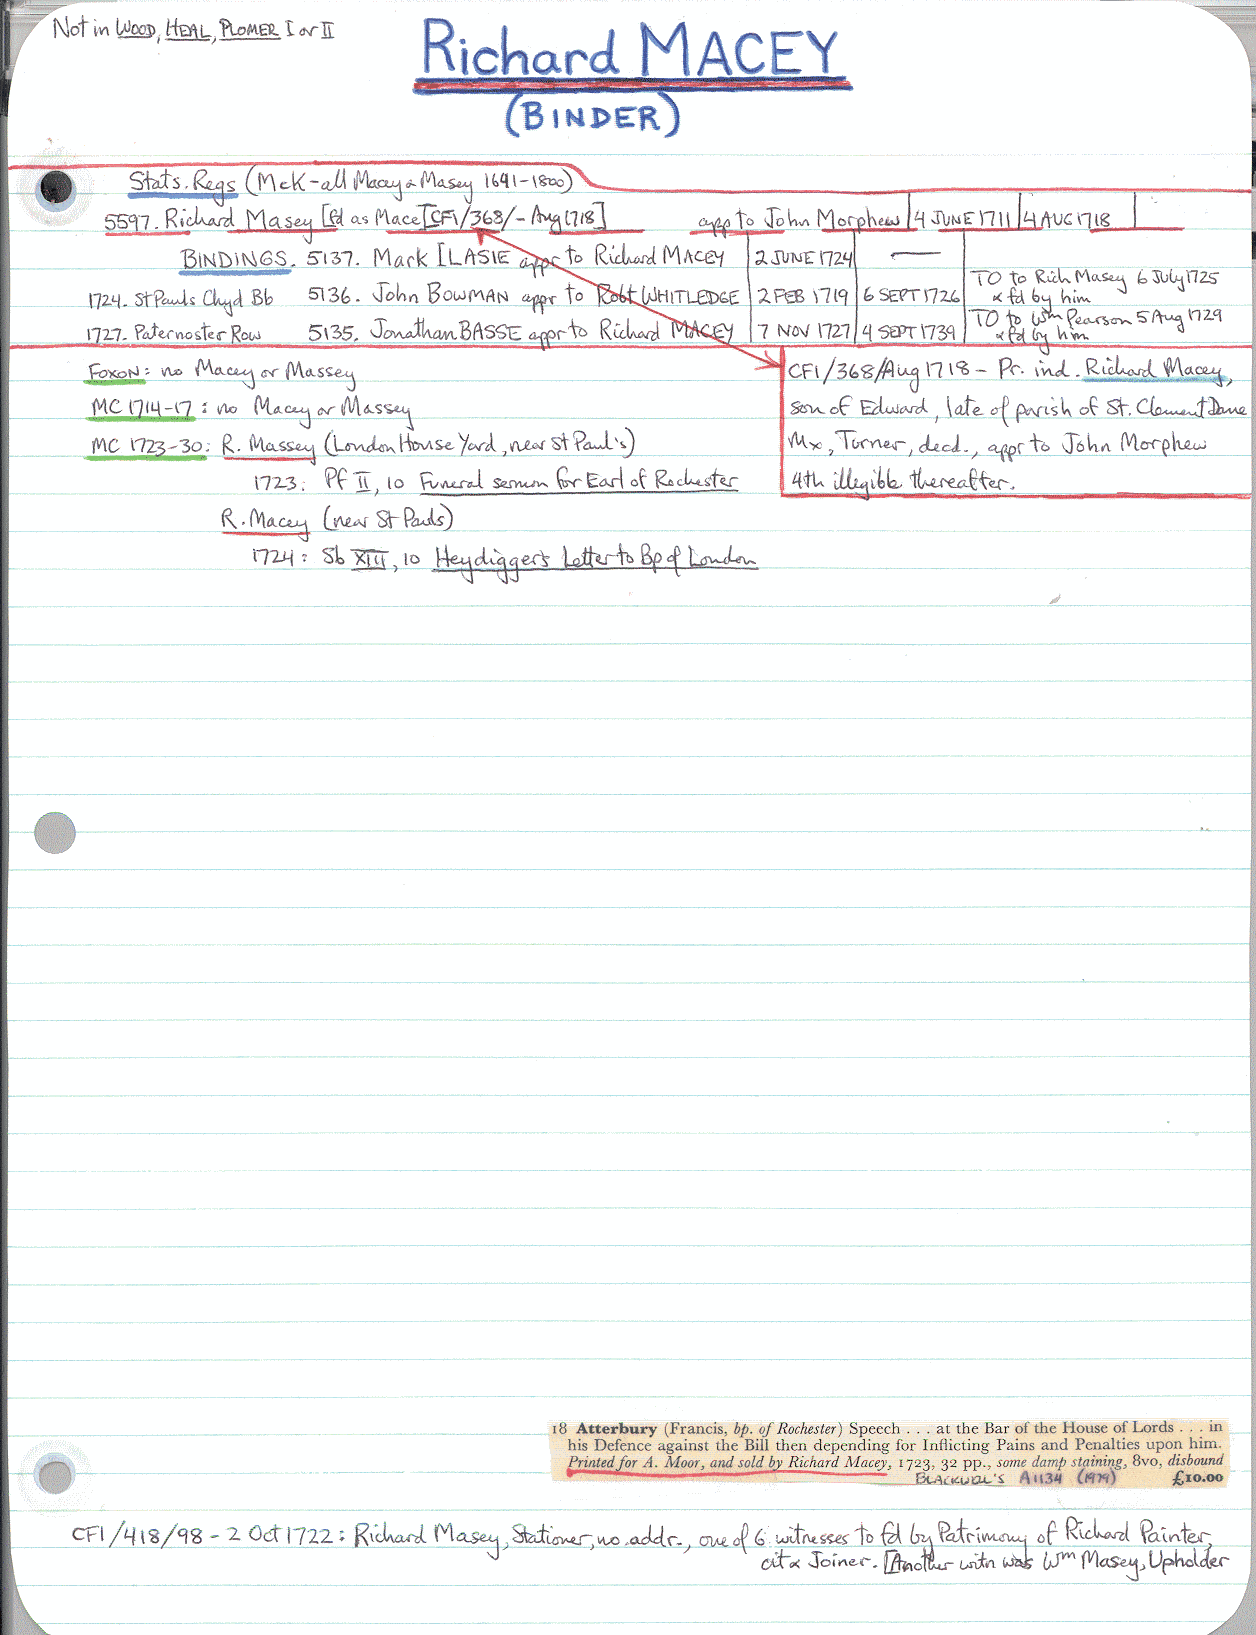 Not in WOOD, HEAL, PLOMER I or II
Richard MACEY
(BINDER)
Stats. Regs (McK-all Macey & Masey 1641-1800)
5597. Richard Masey [fd as Mace [CF1/368/- Aug 1718] appr to John Morphew 4 JUNE 1711 4 AUG 1718
BINDINGS. 5137. Mark [LASIE appr to Richard MACEY 2 JUNE 1724 —
1724. St Pauls Chyd Bb 5136. John BOWMAN appr to Robt WHITLEDGE 2 FEB 1719 6 SEPT 1726 TO to Rich Masey 6 July 1725 & fd by him
1727. Paternoster Row 5135. Jonathan BASSE appr to Richard MACEY 7 NOV 1727 4 SEPT 1739 TO to Wm Pearson 5 Aug 1729 & fd by him
FOXON: no Macey or Massey
MC 1714-17: no Macey or Massey
MC 1723-30: R. Massey (London House Yard, near St Paul's)
1723: Pf II, 10 Funeral sermon for Earl of Rochester
R. Macey (near St Pauls)
1724: Sb XIII, 10 Heydigger's Letter to Bp of London
CF1/368/Aug 1718 - Pr. ind. Richard Macey,
son of Edward, late of parish of St. Clement Dane
Mx, Turner, decd., appr to John Morphew
4th illegible thereafter.
18 Atterbury (Francis, bp. of Rochester) Speech . . . at the Bar of the House of Lords . . . in
his Defence against the Bill then depending for Inflicting Pains and Penalties upon him.
Printed for A. Moor, and sold by Richard Macey, 1723, 32 pp., some damp staining, 8vo, disbound
BLACKWELL'S A1134 (1979) £10.00
CF1/418/98 - 2 Oct 1722: Richard Masey, Stationer, no addr., one of 6 witnesses to fd by Patrimony of Richard Painter,
cit & Joiner. [Another witn was Wm Masey, Upholder